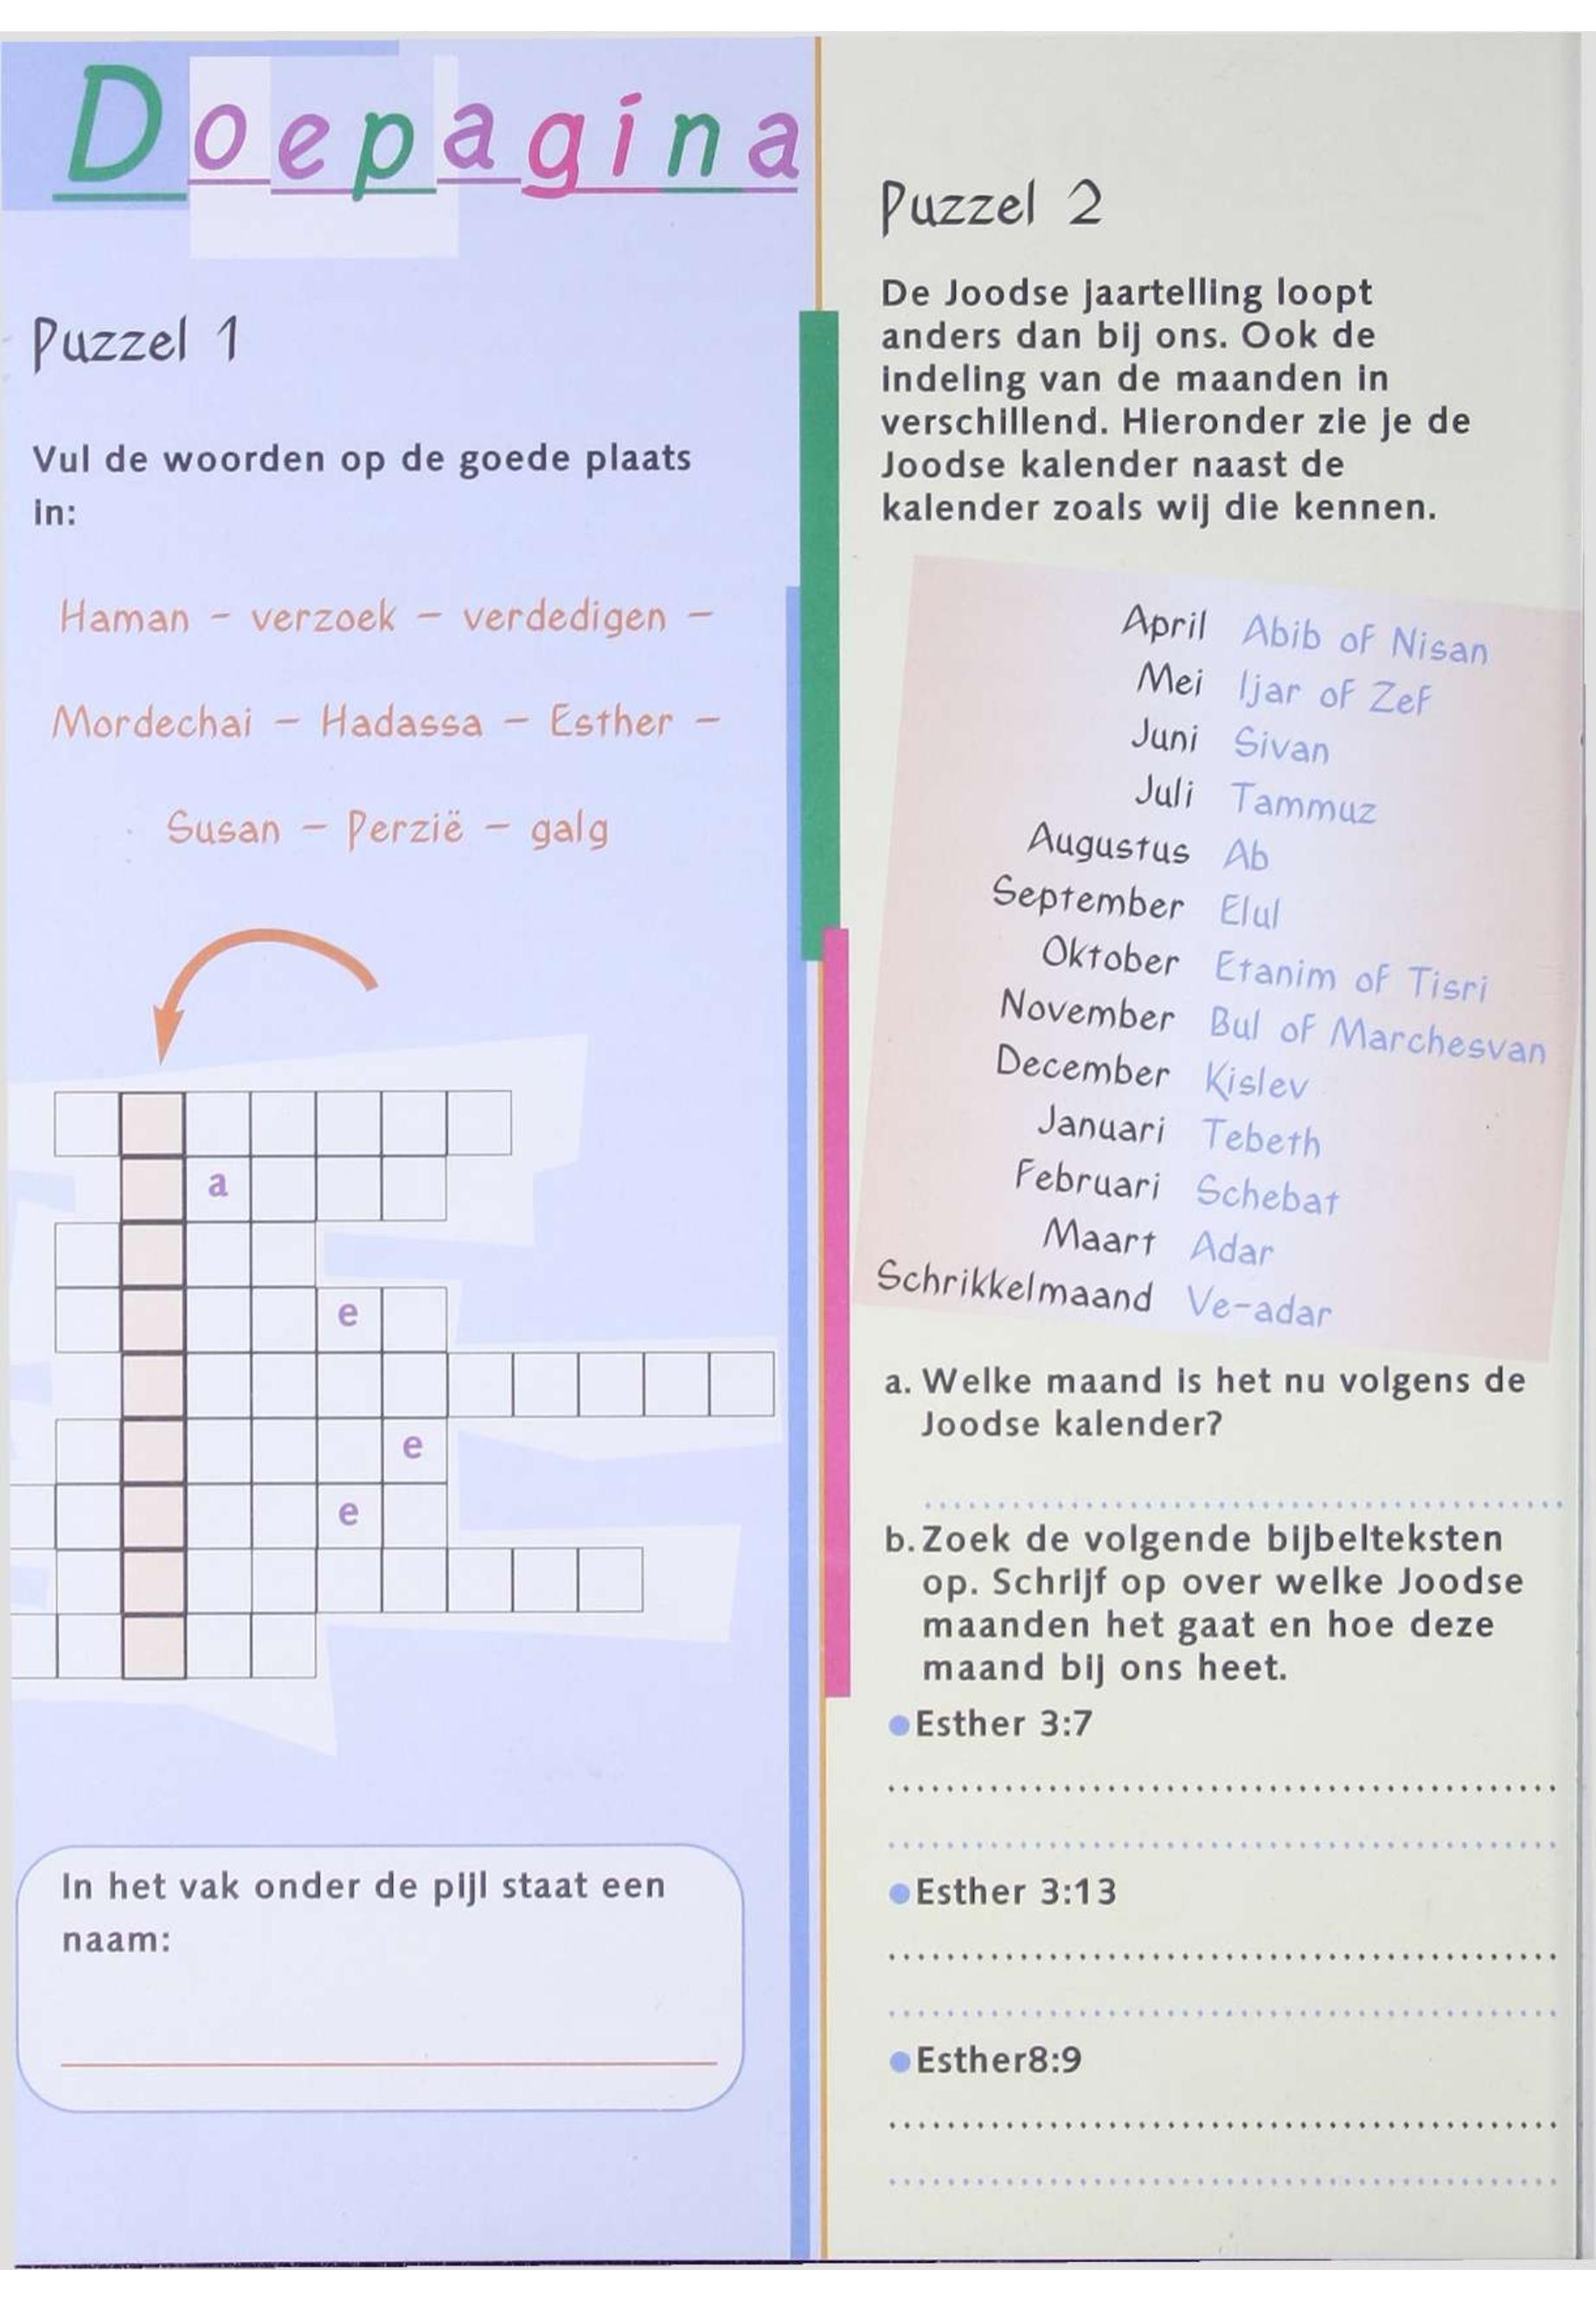 Doepagina
Puzzel 1
Vul de woorden op de goede plaats
in:
Haman – verzoek – verdedigen –
Mordechai – Hadassa – Esther –
Susan – Perzië – galg
a
e
e
e
In het vak onder de pijl staat een
naam:
Puzzel 2
De Joodse jaartelling loopt
anders dan bij ons. Ook de
indeling van de maanden in
verschillend. Hieronder zie je de
Joodse kalender naast de
kalender zoals wij die kennen.
April Abib of Nisan
Mei Ijar of Zef
Juni Sivan
Juli Tammuz
Augustus Ab
September Elul
Oktober Etanim of Tisri
November Bul of Marchesvan
December Kislev
Januari Tebeth
Februari Schebat
Maart Adar
Schrikkelmaand Ve-adar
a. Welke maand is het nu volgens de
Joodse kalender?
b. Zoek de volgende bijbelteksten
op. Schrijf op over welke Joodse
maanden het gaat en hoe deze
maand bij ons heet.
Esther 3:7
Esther 3:13
Esther8:9